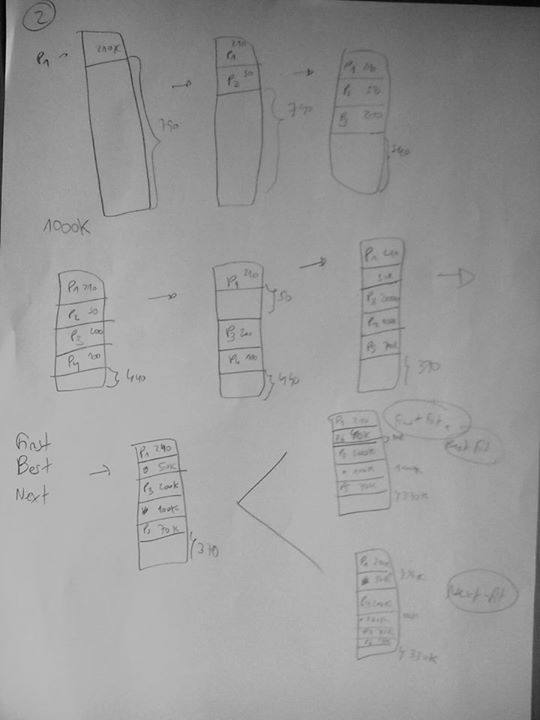 2
P1
210K
790
210
P1
P2 50
740
P1 210
P2 50
P3 200
540
1000K
P1 210
P2 50
P3 200
P4 100
440
P1 210
50
P3 200
P4 100
440
P1 210
50K
P3 200K
P5 70K
370
First
Best
Next
P1 210
50K
P3 200K
100K
P5 70K
370
P1 210
P6 40K
P3 200K
100K
P5 70K
370K
First Fit
Best Fit
50K
P3 200K
330K
Next-fit